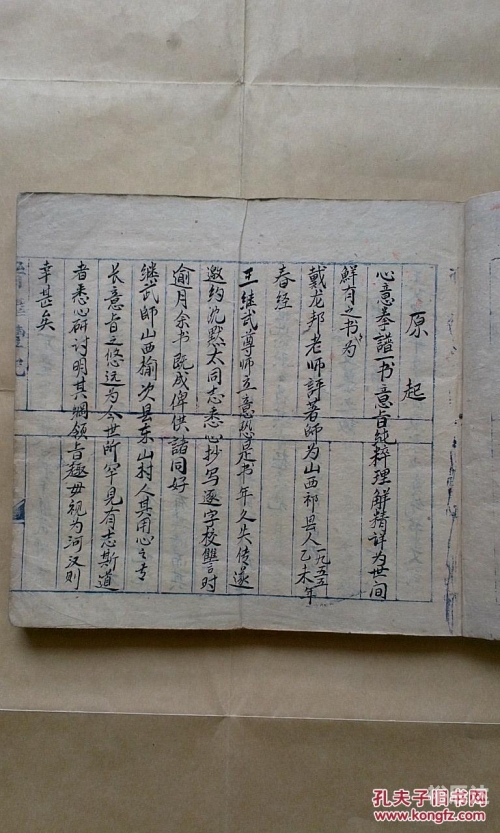 原起
心意拳谱一书意旨纯粹理解精详为世间
鲜有之书为
戴龙邦老师评著师为山西祁县人乙未年
一九五五
春经
王继武尊师立意恐是书年久失传遂
邀约沈默太同志悉心抄写逐字校讐时
逾月余书既成俾供諸同好
继武師山西榆次县东山村人其用心之专
长意旨之悠远为今世所罕见有志斯道
者悉心研讨明其綱领旨趣毋视为河汉则
幸甚矣
孔夫子旧书网
www.kongfz.com